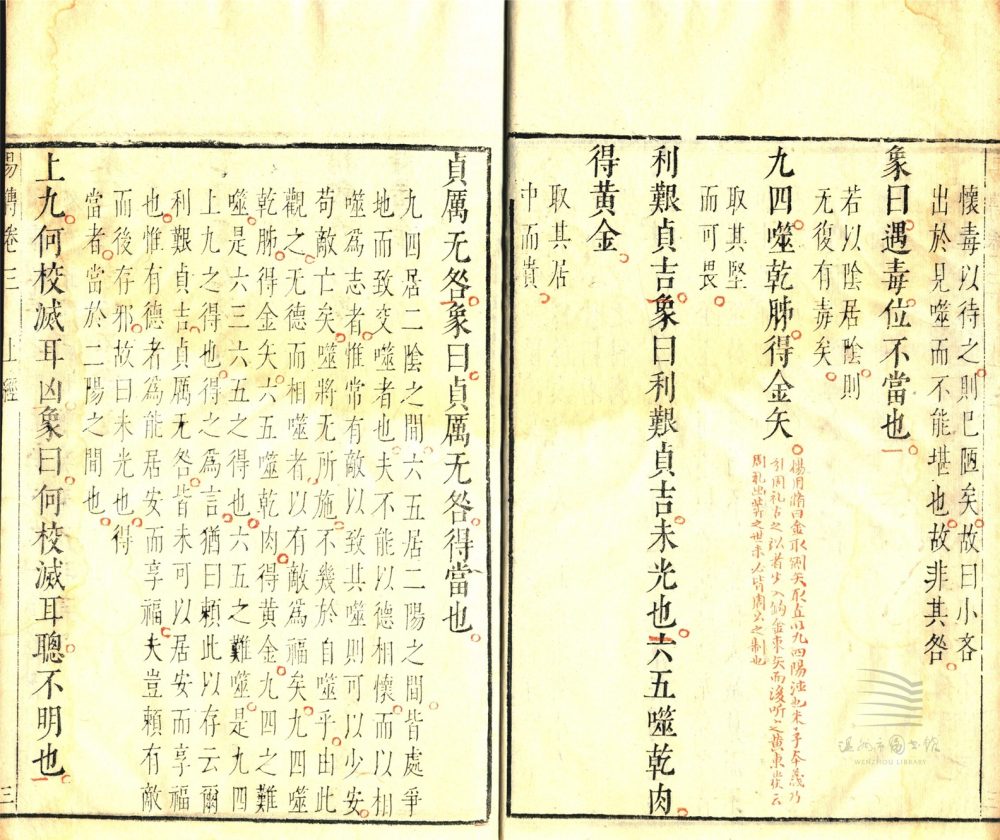 懷毒以待之則已陋矣故曰小吝
出於見噬而不能堪也故非其咎
象曰遇毒位不當也
若以陰居陰則
无復有毒矣
九四噬乾胏得金矢
取其堅
而可畏
利艱貞吉象曰利艱貞吉未光也六五噬乾肉
得黃金
取其居
中而貴
貞厲无咎象曰貞厲无咎得當也
九四居二陰之間六五居二陽之間皆處爭
地而致交噬者也夫不能以德相懷而以相
噬爲志者惟常有敵以致其噬則可以少安
苟敵亡矣噬將无所施不幾於自噬乎由此
觀之无德而相噬者以有敵爲福矣九四噬
乾胏得金矢六五噬乾肉得黃金九四之難
噬是六三六五之得也六五之難噬是九四
上九之得也得之爲言猶曰賴此以存云爾
利艱貞吉貞厲无咎皆未可以居安而享福
也惟有德者爲能居安而享福夫豈賴有敵
而後存邪故曰未光也得
當者當於二陽之間也
上九何校滅耳凶象曰何校滅耳聰不明也
易傳卷三 上經 三
溫州市圖書館
WENZHOU LIBRARY